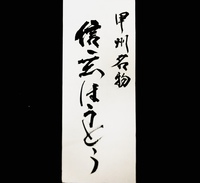 甲州名物
信玄ほうとう